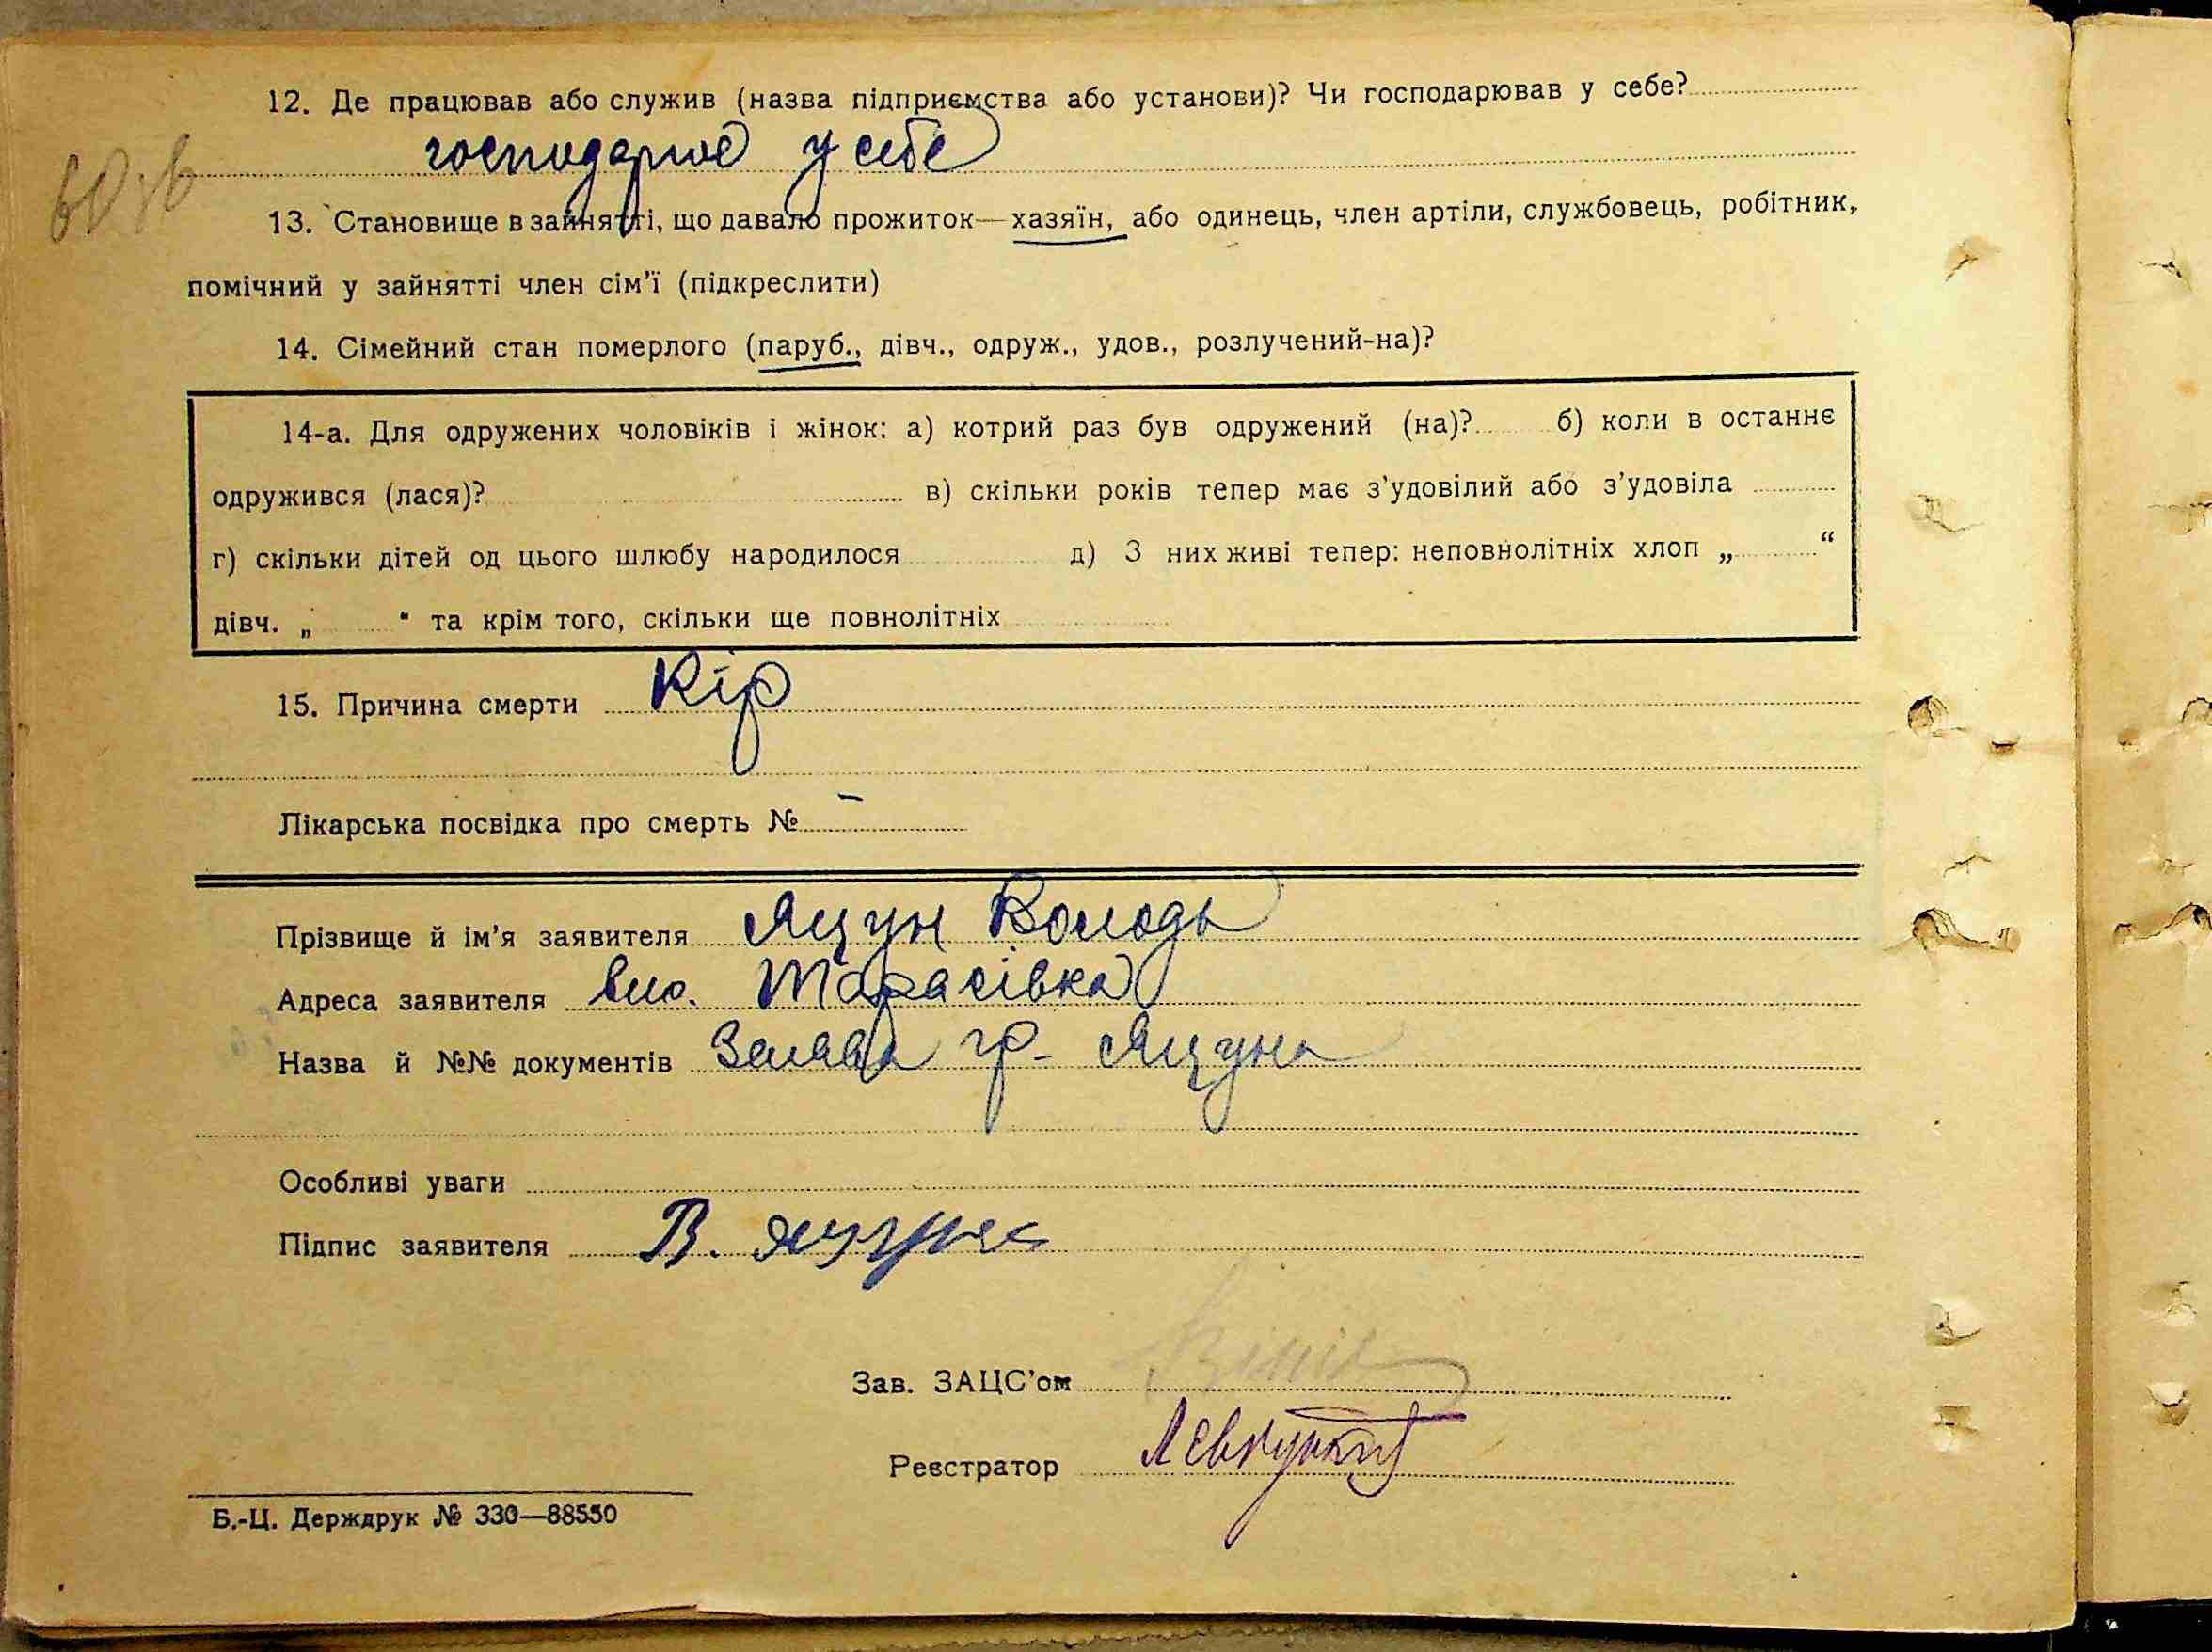 12. Де працював або служив (назва підприємства або установи)? Чи господарював у себе?
господарює у себе
13. Становище в зайнятті, що давало прожиток—хазяїн, або одинець, член артіли, службовець, робітник,
помічний у зайнятті член сім'ї (підкреслити)
14. Сімейний стан померлого (паруб., дівч., одруж., удов., розлучений-на)?
14-а. Для одружених чоловіків і жінок: а) котрий раз був одружений (на)? б) коли в останнє
одружився (лася)? в) скільки років тепер має з'удовілий або з'удовіла
г) скільки дітей од цього шлюбу народилося д) З них живі тепер: неповнолітніх хлоп „ “
дівч. „ “ та крім того, скільки ще повнолітніх
15. Причина смерти Кір
Лікарська посвідка про смерть № –
Прізвище й ім'я заявителя Яцун Володь
Адреса заявителя Тарасівка
Назва й №№ документів Заява гр- Яцуна
Особливі уваги
Підпис заявителя В. Яцун
Зав. ЗАЦС'ом
Реєстратор
Б.-Ц. Держдрук № 330—88550